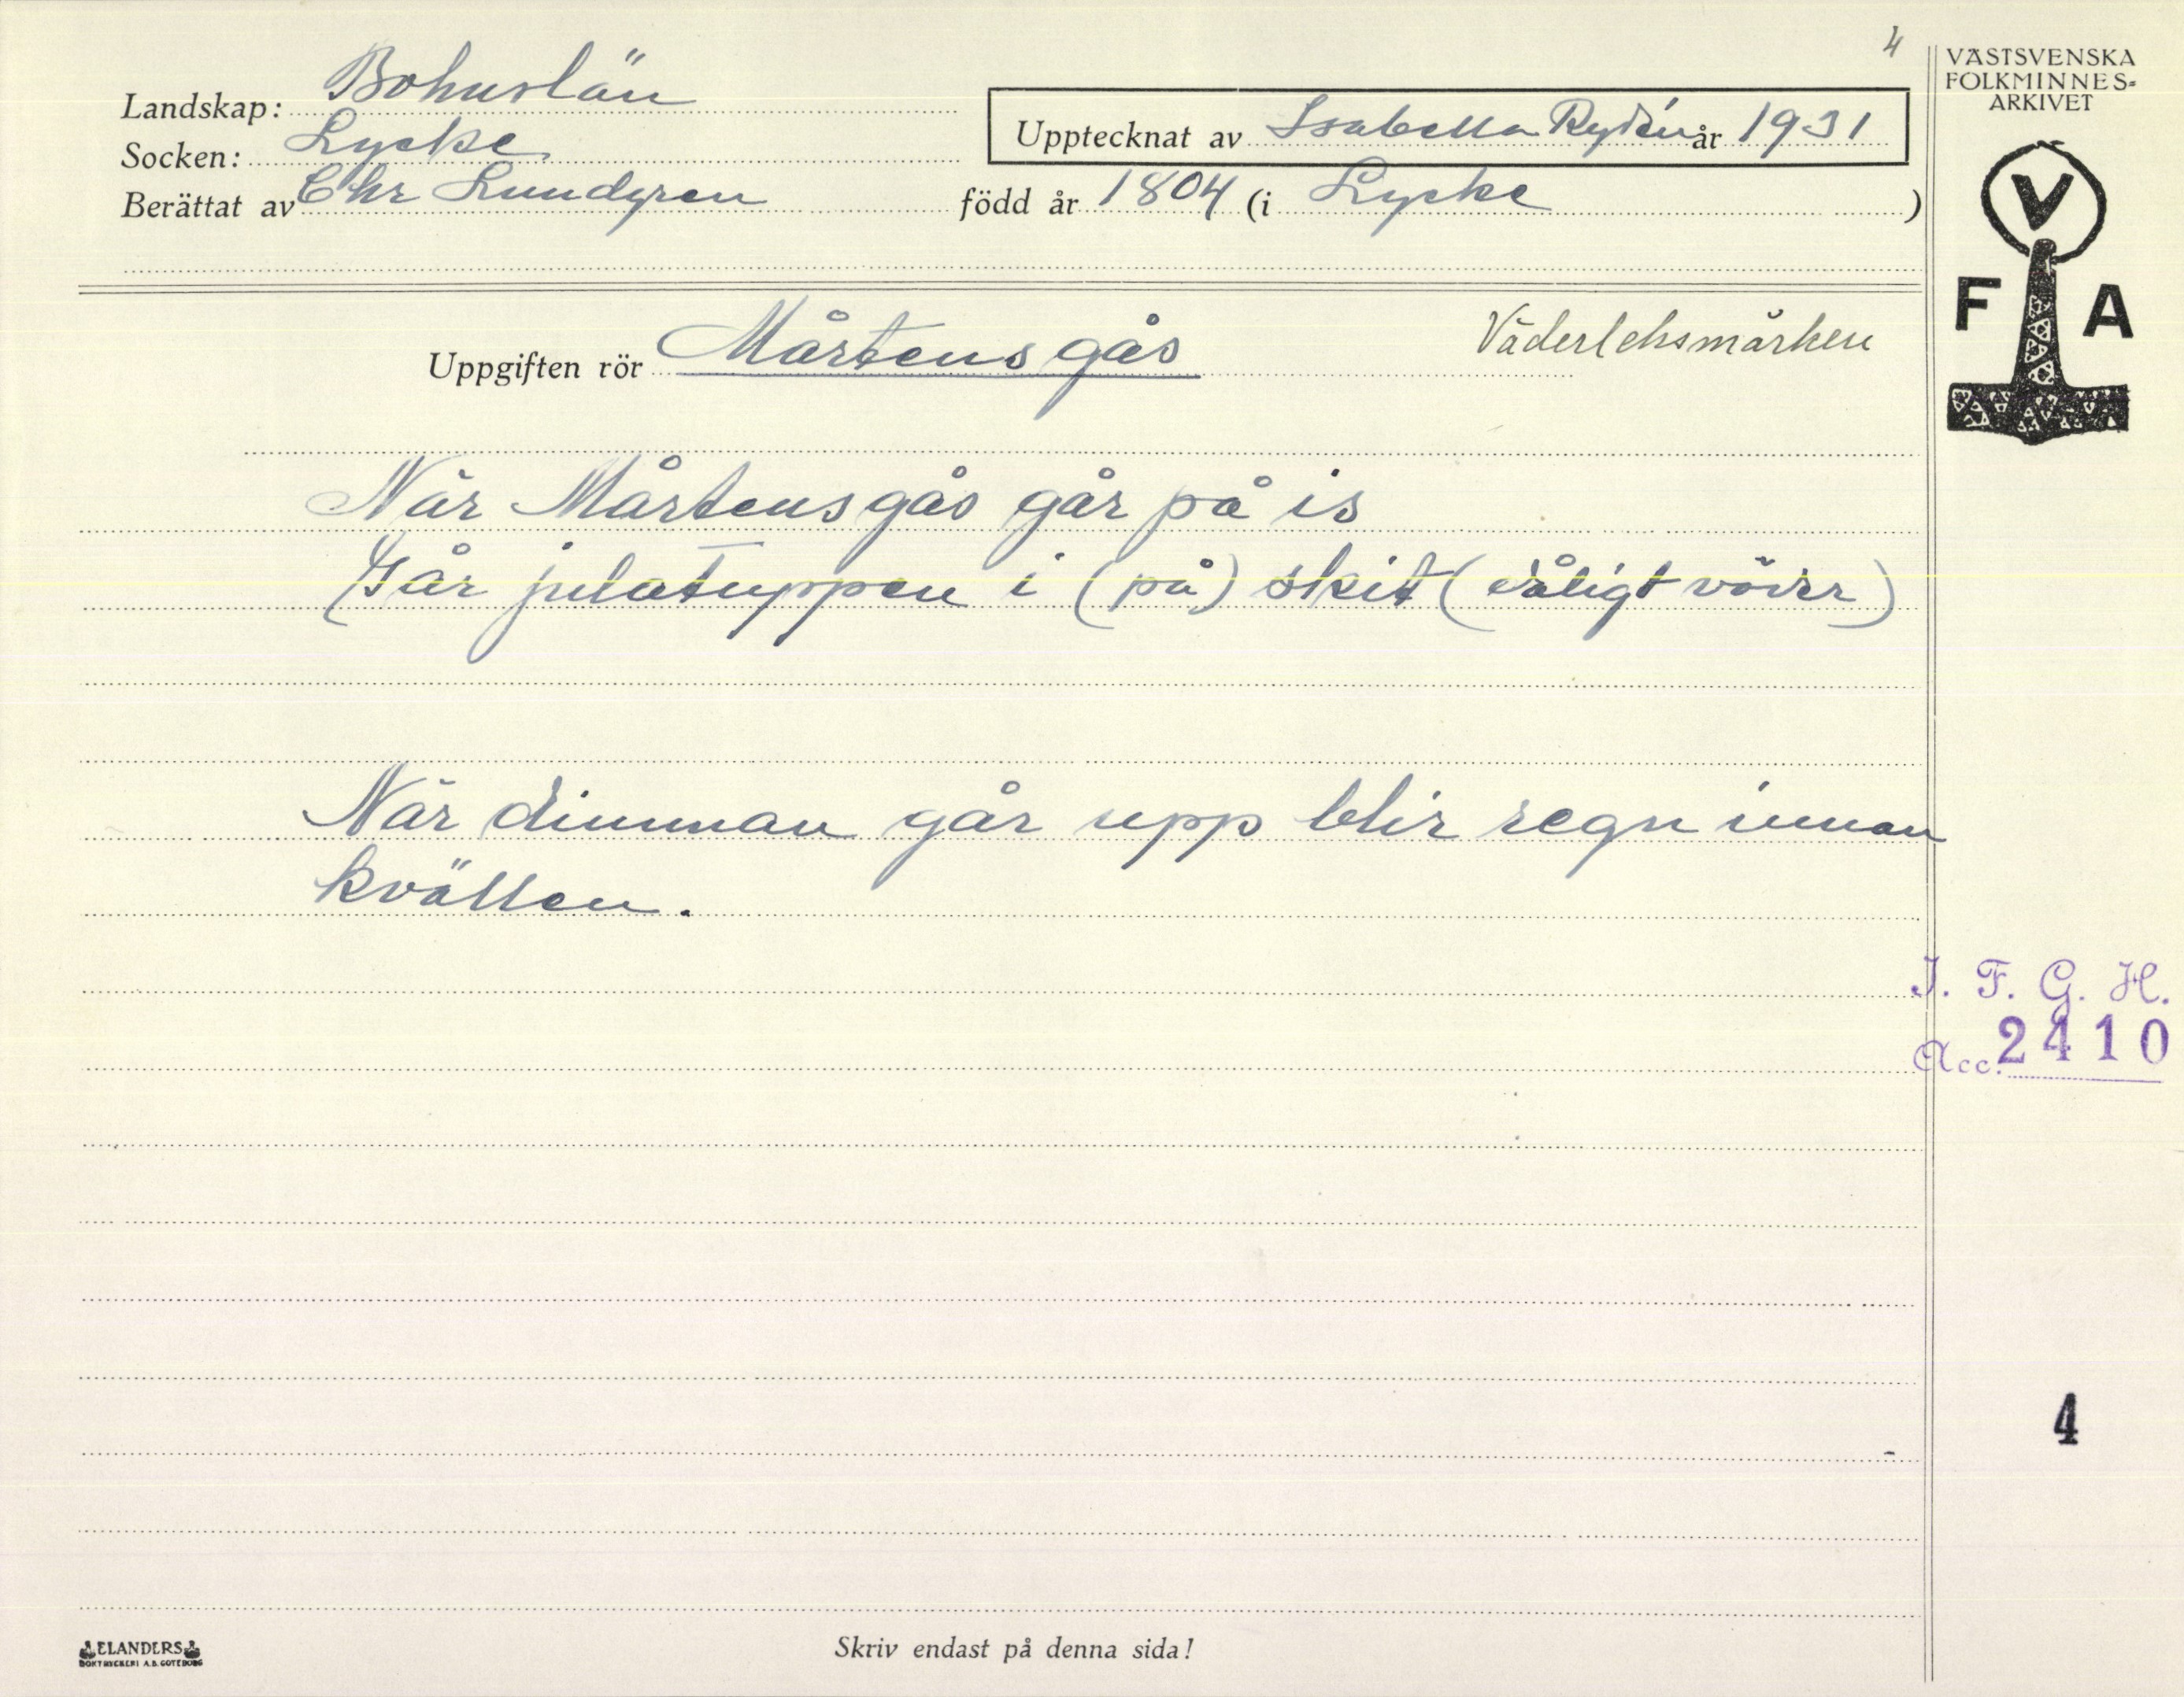 4
VÄSTSVENSKA
FOLKMINNES-
ARKIVET
Landskap: Bohuslän
Socken: Lycke
Upptecknat av Isabella Rydén år 1931
Berättat av Chr Lundgren född år 1804 (i Lycke )
V
F A
Uppgiften rör Mårtensgås
Väderleksmärken
När Mårtensgås går på is
Går julatuppen i (på) skit (dåligt väder)
När dimman går upp blir regn innan
kvällen.
I. F. G. H.
Acc. 2410
4
ELANDERS
BOKTRYCKERI A.B. GÖTEBORG
Skriv endast på denna sida!